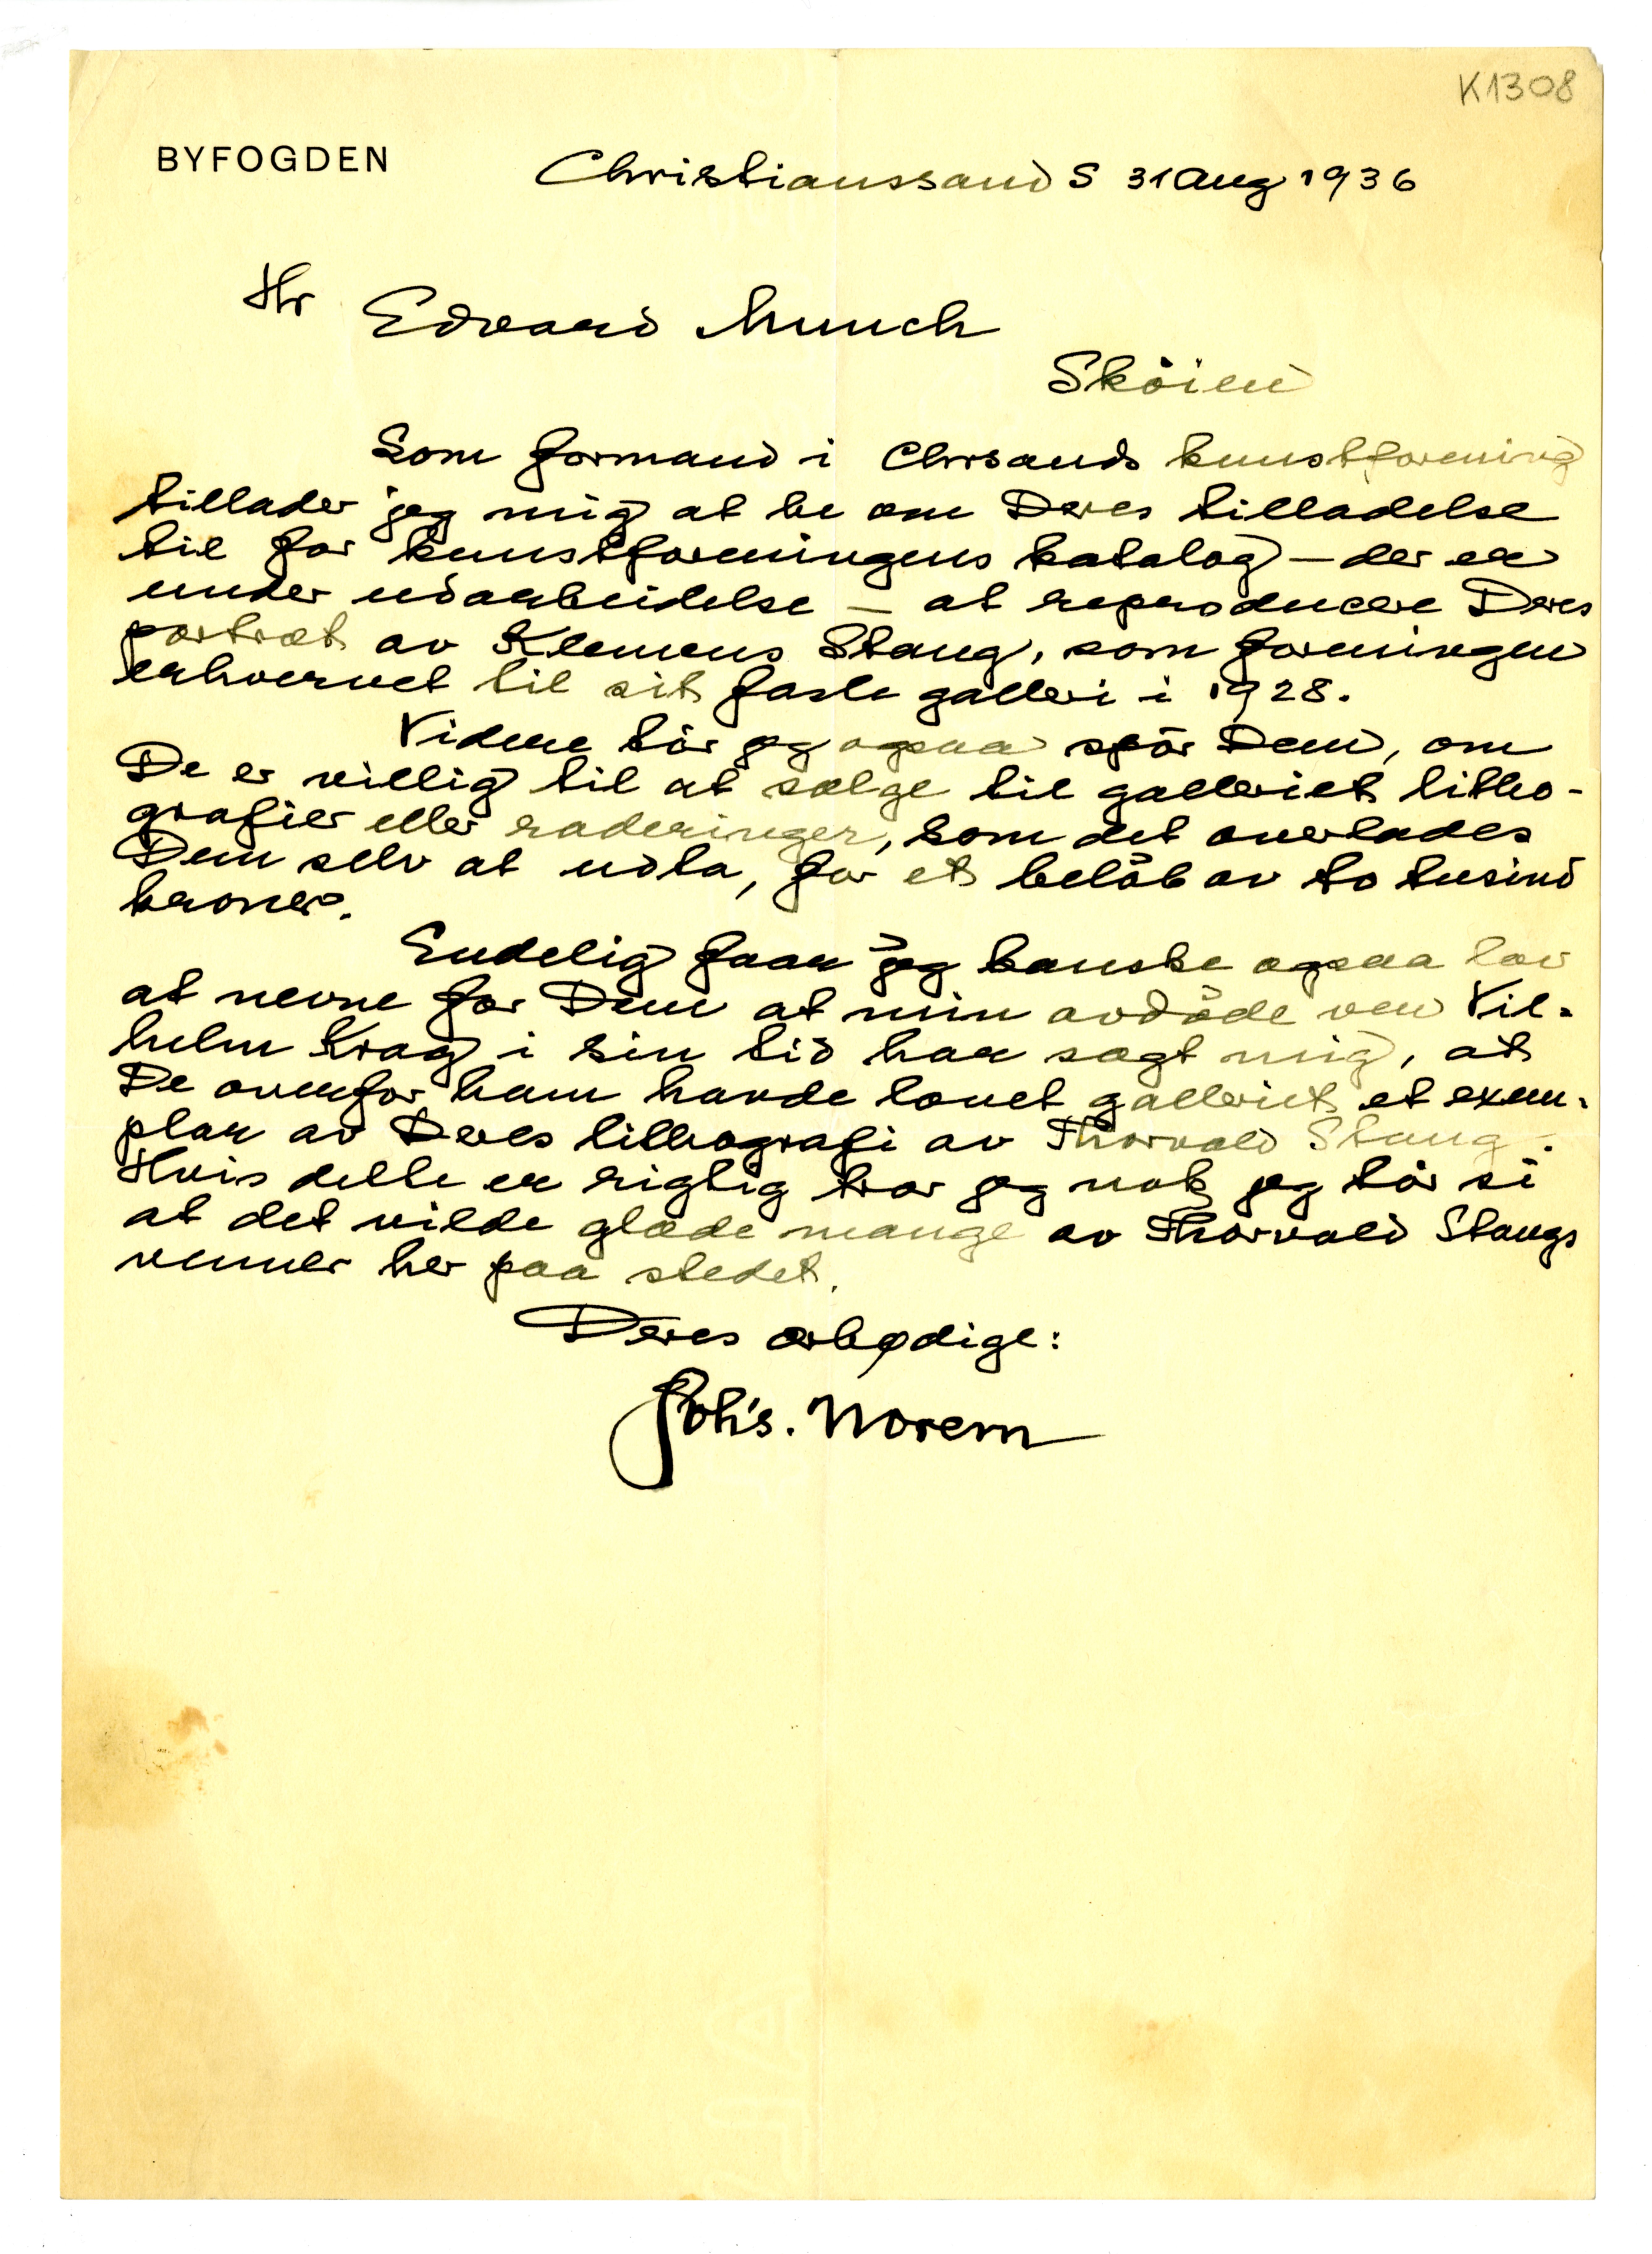 K1308
BYFOGDEN
Christianssand S 31 Aug 1936
Hr Edvard Munch
Sköien
Som formand i Chrsands kunstforening
tillader jeg mig at be om Deres tilladelse
til for kunstforeningens katalog – der er
under udarbeidelse – at reproducere Deres
portræt av Klemens Stang, som foreningen
erhvervet til sit faste galleri i 1928.
Videre tör jeg ogsaa spör Dem, om
De er villig til at sælge til galleriet litho-
grafier eller raderinger, som det overlades
Dem selv at udta, for et belöb av to tusind
kroner.
Endelig faar jeg kanske ogsaa lov
at nevne for Dem at min avdöde ven Vil-
helm Krag i sin tid har sagt mig, at
De ovenfor ham havde lovet galleriet et exem-
plar av Deres lithografi av Thorvald Stang.
Hvis dette er rigtig tror jeg nok jeg tör si
at det vilde glæde mange av Thorvald Stangs
venner her paa stedet.
Deres ærbødige:
Joh's. Norem